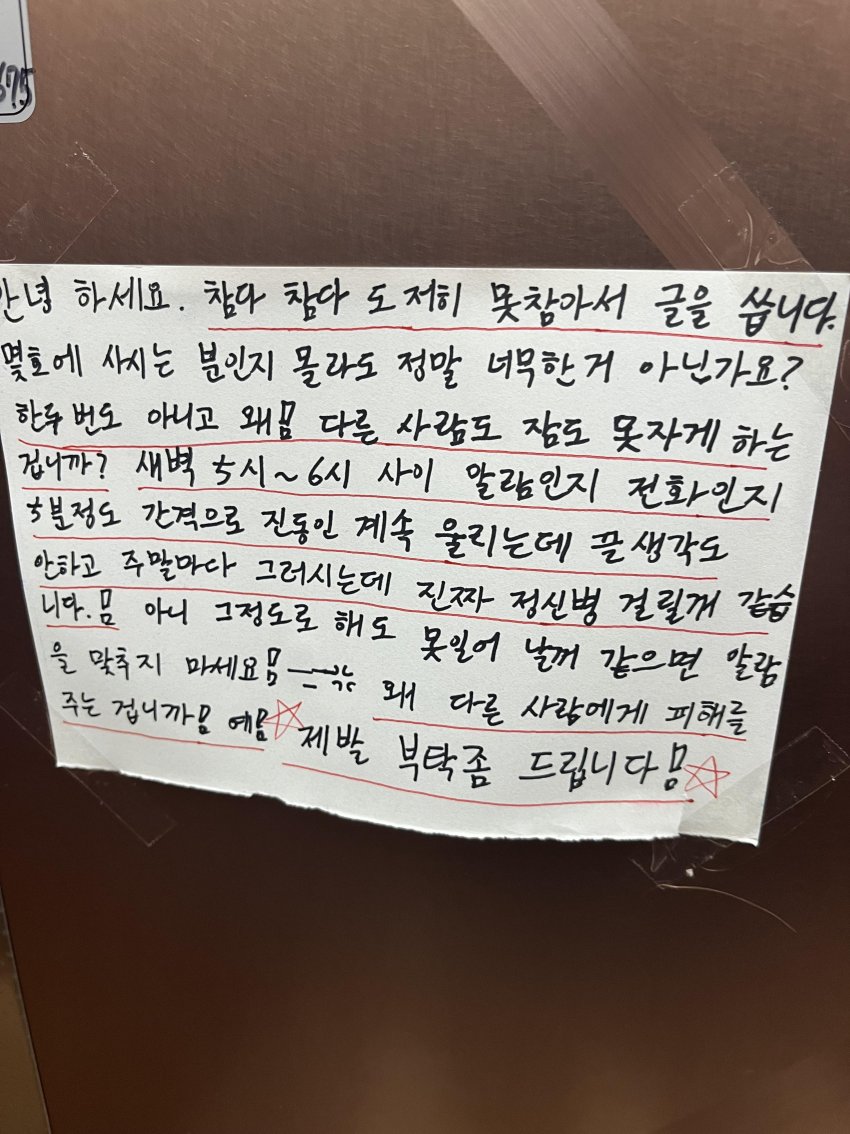 675
안녕 하세요. 참다 참다 도저히 못참아서 글을 씁니다.
몇호에 사시는 분인지 몰라도 정말 너무한거 아닌가요?
한두번도 아니고 왜!! 다른 사람도 잠도 못자게 하는
겁니까? 새벽 5시~6시 사이 알람인지 전화인지
5분정도 간격으로 진동인 계속 울리는데 끌생각도
안하고 주말마다 그러시는데 진짜 정신병 걸릴꺼 같습
니다.!! 아니 그정도로 해도 못일어 날꺼 같으면 알람
을 맞추지 마세요!! 왜 다른 사람에게 피해를
주는 겁니까!! 예!! ☆ 제발 부탁좀 드립니다!! ☆